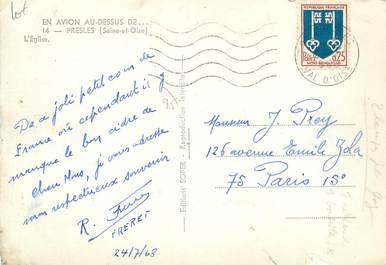 lot
EN AVION AU-DESSUS DE...
14 — PRESLES (Seine-et-Oise)
L'Eglise.
De ce joli petit coin de
France où cependant il y
manque le bon cidre de
chez Nous, je vous adresse
mes respectueux souvenir
R.
FRERET
24/7/68
95
Editions SOFER - Reproduction interdite
REPUBLIQUE FRANÇAISE
0,25
VAL D'OISE
Monsieur J. Prey
126 avenue Emile Zola
75 Paris 15°